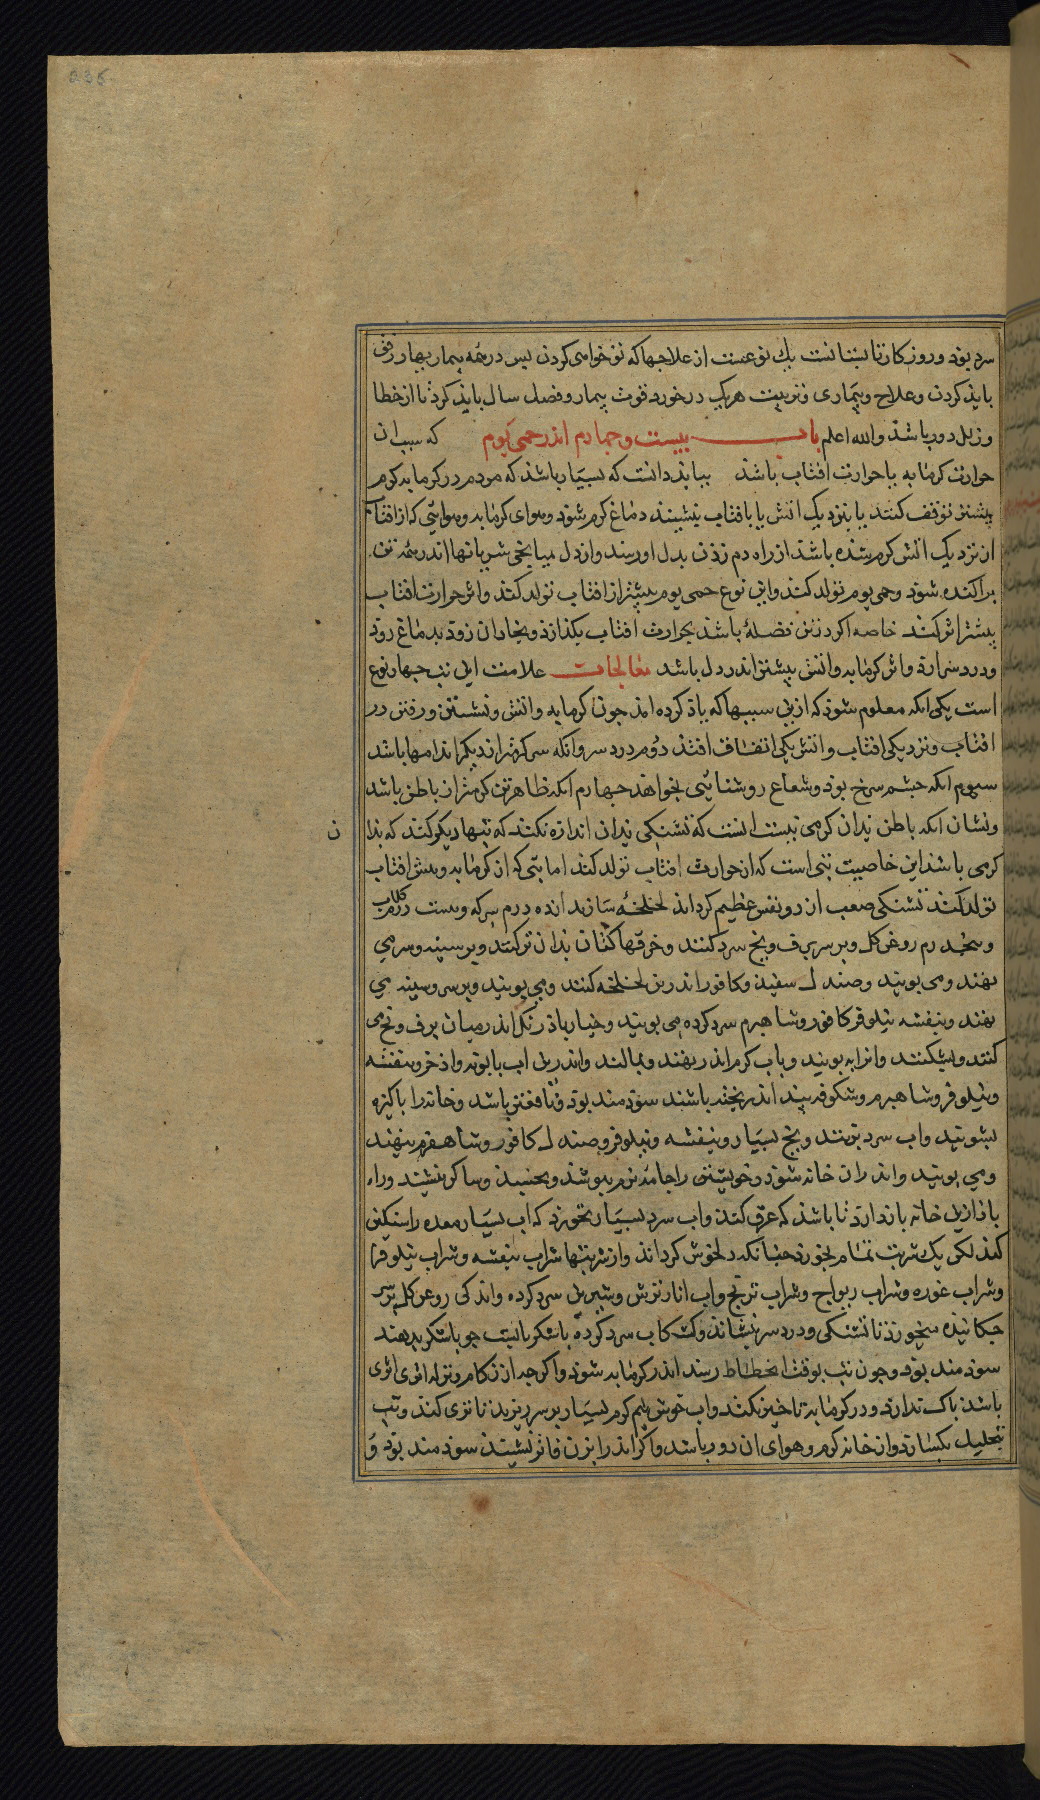 235
سرد بوذ و روزکار تابستانست یك نوعست از علاجها که تو خواهی کردن پس در همه بیماریها رفق
بایذ کردن و علاج و بیماری و تربیت هریک در خورد قوت بیمار و فصل سال بایذ کرد تا از خطا
و زلل دور باشذ والله اعلم باب بیست و چهارم اندر حمی یوم که سبب ان
حرارت کرمابه یا حرارت افتاب باشذ ببایذ دانست که بسیار باشذ که مردم در کرمابه کرم
بیشتر توقف کنند یا بنزدیک اتش یا بافتاب بنشیند دماغ کرم شوذ و هوای کرمابه و هوائی که از افتاب
ان نزدیک اتش کرم شذه باشذ از راه دم زذن بدل او رسذ و از دل بمیانجی شریانها اندر همه تن
براکنده شوذ و حمی یوم تولد کنذ و این نوع حمی یوم بیشتر از افتاب تولد کند و اثر حرارت افتاب
بیشتر اثر کند خاصه اکر در تن فضلهٔ باشذ بحرارت افتاب بکذازذ و بخار ان زوذ بدماغ روذ
و درد سر ارذ و اثر کرمابه و اتش بیشتر اندر دل باشد معالجات علامت این تب چهار نوع
است یکی انکه معلوم شوذ که ازین سببها که یاذ کرده امذ چون کرمابه و اتش و نشستن و رفتن در
افتاب و نزدیکی افتاب و اتش یکی اتفاق افتذ دوم درد سر و انکه سر کرمتر از دیکر اندامها باشد
سیوم انکه چشم سرخ بوذ و شعاع روشنائی نخواهذ چهارم انکه ظاهر تن کرمتر از باطن باشد
و نشان انکه باطن بدان کرمی نیست انست که تشنکی بدان اندازه نکند که تبهاء دیکر کند که بدا ن
کرمی باشذ این خاصیت تبی است که از حرارت افتاب تولد کند اما تبی که از کرمابه و اتش افتاب
تولد کند تشنکی صعب ارد و نفس عظیم کرداند لخلخهٔ سازند از ده درم سرکه و بیست درم کلاب
و پنجدرم روغن کل و بر سر برف و یخ سرد کنند و خرقهاء کتان بدان تر کنند و بر سینه و سر می
نهند و می بویند و صندل سفیذ و کافور اندرین لخلخه کنند و می بویند و بر سر و سینه می
نهند و بنفشه نیلوفر کافور و شاهسپرم سرد کرده می بویند و خیار باذرنک اندر میان برف و یخ می
کنند و بشکنند و انرا ببویند و باب کرم اندر نهند و بمالند و اندرین اب بابونه و اذخر و بنفشه
و نیلوفر و شاهسپرم و شکوفه بید اندر پخته باشند سوذمند بوذ و نافعتر باشد و خانه را پاکیزه
بشویند و اب سرد بزنند و یخ بسیار و بنفشه و نیلوفر و صندل کافور و شاهسفرم بنهند
و می بویند و اندران خانه شوذ و خویشتن را جامه نرم بپوشذ و بخسپذ و ساکن نشیند و راه
باذ ازین خانه بازدارذ تا باشذ که عرق کند و اب سرد بسیار نخورذ که اب بسیار معده را سنکین
کند لکن یک شربت تمام بخورذ چنانکه دلخوش کرداند و از شربتها شراب بنفشه و شراب نیلوفر
و شراب غوره و شراب ریواج و شراب ترنج و اب انار ترش و شیرین سرد کرده و اندکی روغن کل بر سر
چکانیذه میخورذ تا تشنکی و درد سر بنشاند و کشکاب سرد کرده با شکر یا پست جو با شکر بدهند
سوذمند بوذ و چون تب بوقت انحطاط رسد اندر کرمابه شوذ و اکرچه از زکام و نزله اثری
باشذ باک ندارذ و در کرمابه تاخیر نکند و اب خوش نیم کرم بسیار بر سر ریزد تا تری کند و تب
تحلیل بکسارد و ان خانه کرم و هوای ان دور باشد و اکر اندر ابزن فاتر نشیند سوذمند بوذ و